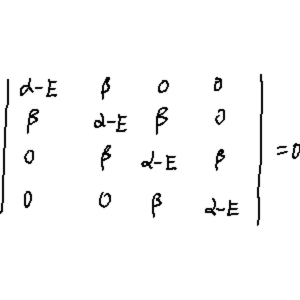 | α-E β 0 0 |
| β α-E β 0 |
| 0 β α-E β | = 0
| 0 0 β α-E |